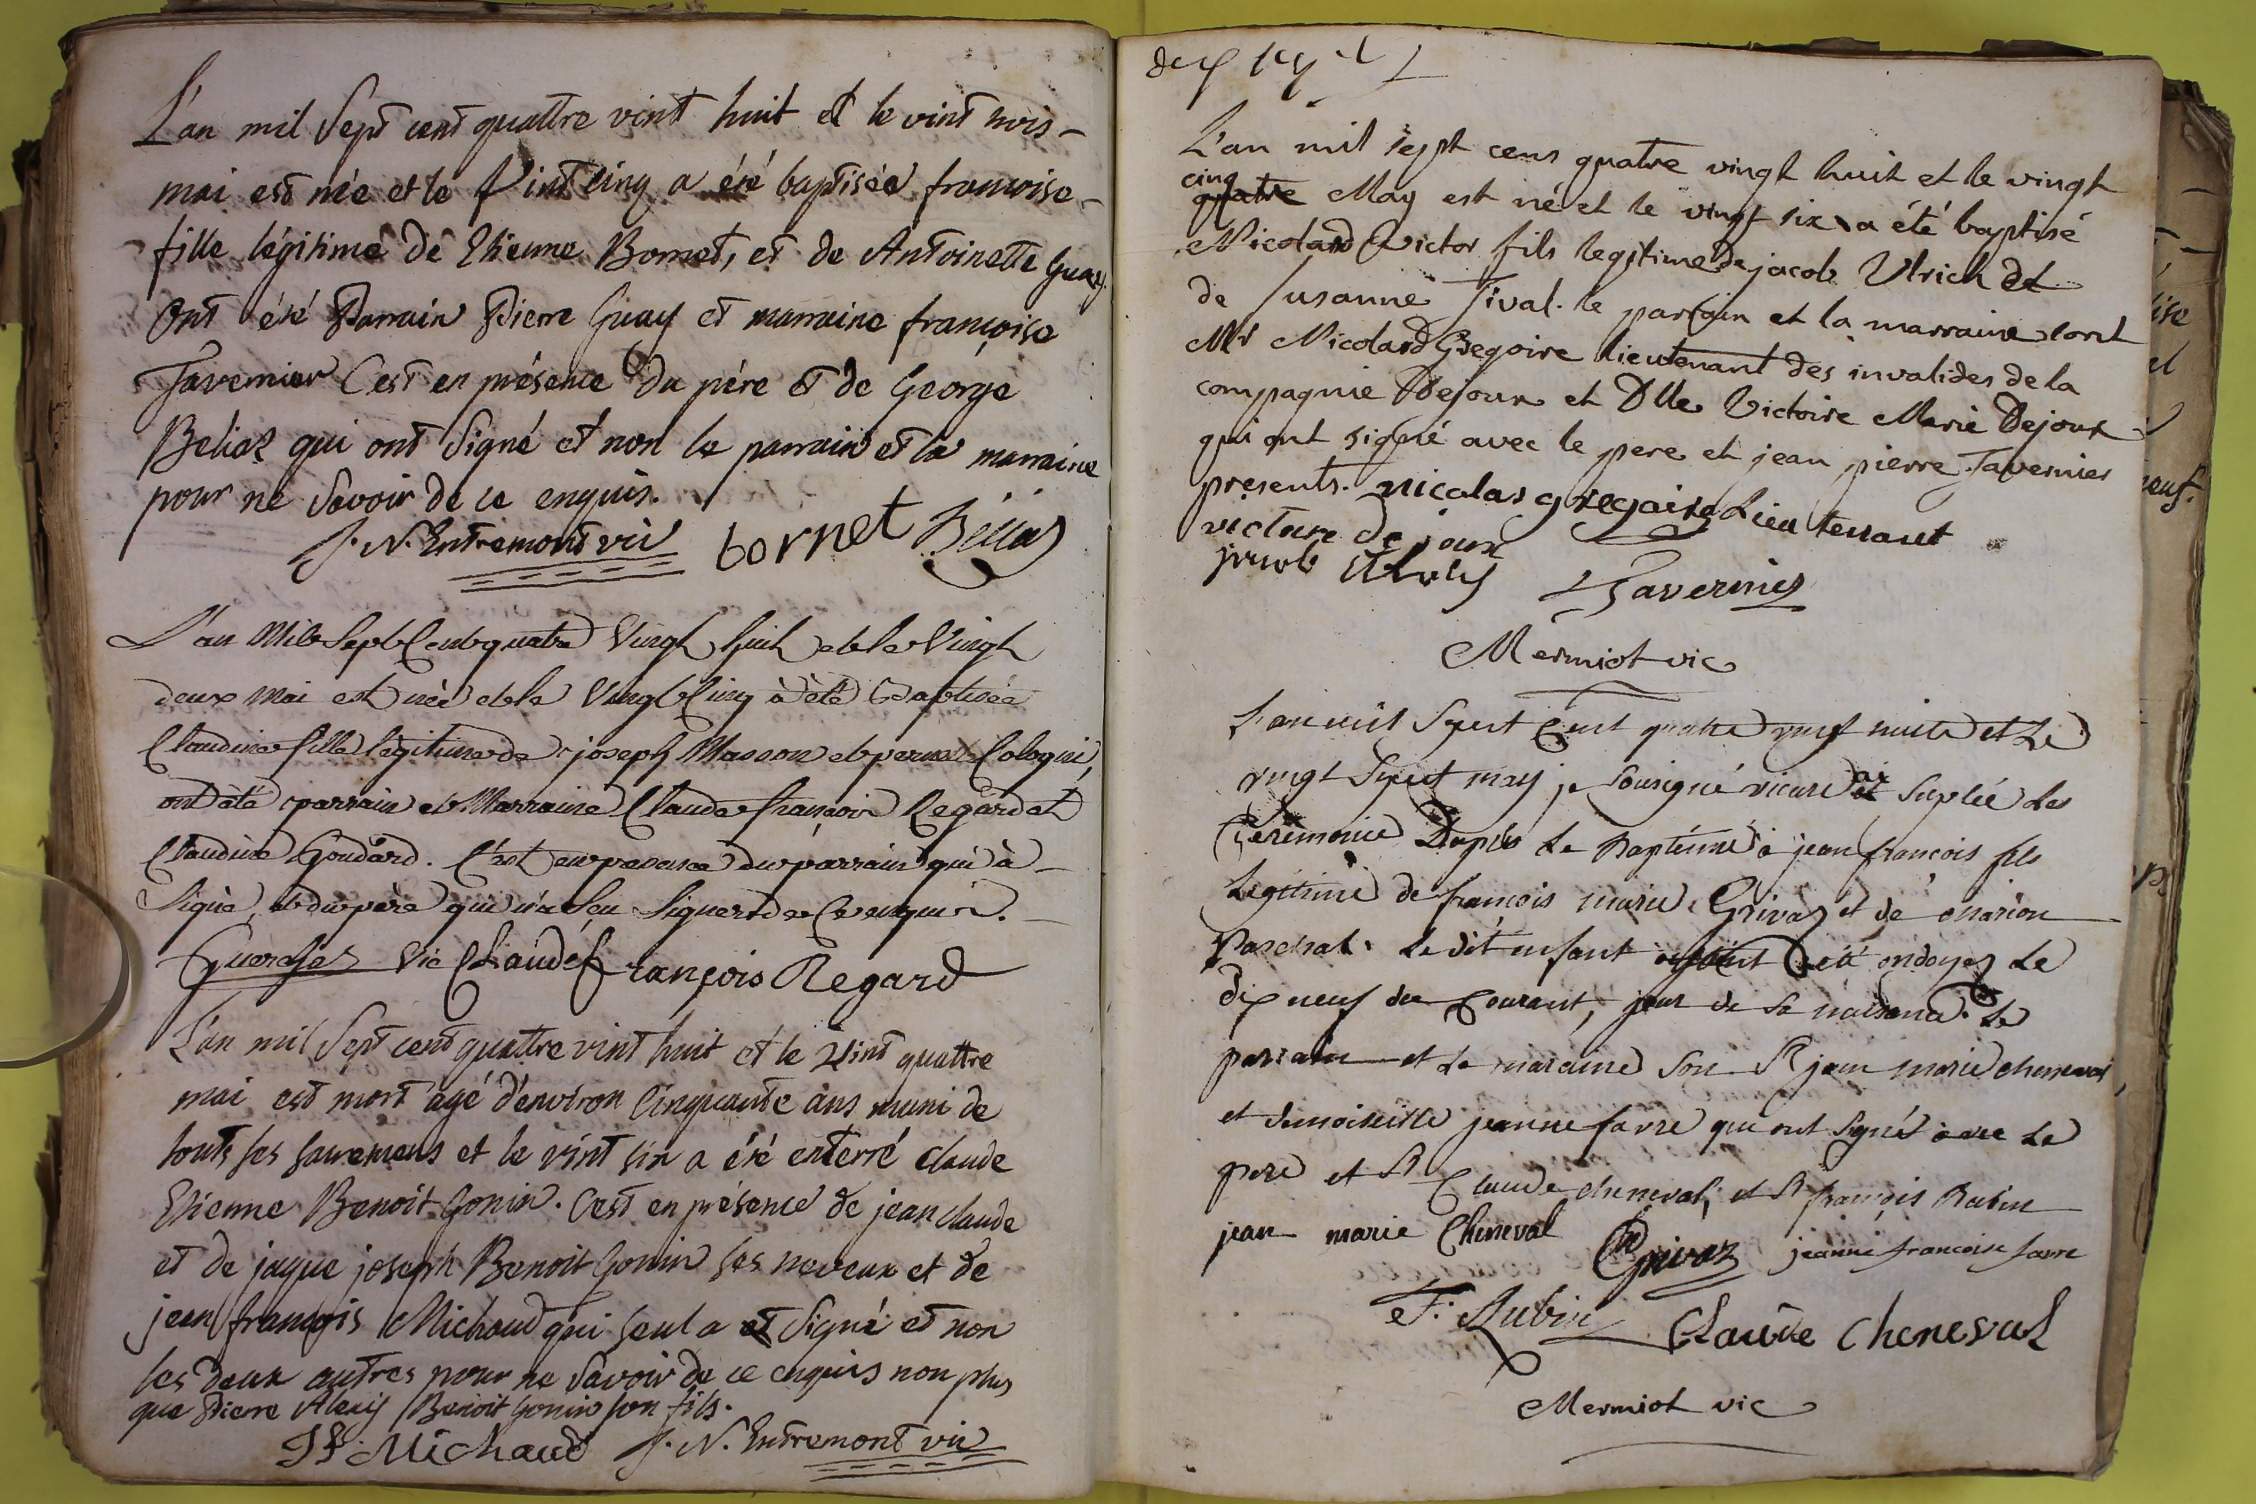 L'an mil Sept cent quattre vint huit et le vint trois
mai est née et le vint cinq a été baptisée francoise
fille légitime de Etienne Bornet, et de Antoinette Guay.
Ont été Parrain Pierre Guay et marraine françoise
Tavernier C'est en présence du père et de George
Beliaz qui ont Signé et non le parrain et la marraine
pour ne Savoir de ce enquis.
J. N. Entremont vic bornet Béliaz
L'an Mil Sept Cent quatre Vingt huit et le Vingt
deux mai est née et le Vingt Cinq à été Baptisée
Claudine fille légitime de joseph Masson et pernette Cologni,
ont été parrain et Marraine Claude françois Regard et
Claudine Goudard. C'est en presence du parrain qui à
Signé, et du père qui n'a Seu Signer de Ce enquis.
Vic Claude François Regard
L'an mil Sept cent quattre vint huit et le vint quattre
mai est mort agé d'environ Cinquante ans muni de
touts ses sacremens et le vint six a été enterré claude
Etienne Benoit Gonin. C'est en présence de jean claude
et de jaque joseph Benoit Gonin ses neveux et de
jean françois Michaud qui seul a Signé et non
les deux autres pour ne Savoir de ce enquis non plus
que Pierre Alexis Benoit Gonin son fils.
Jf. Michaud J. N. Entremont vic
L'an mil sept cens quatre vingt huit et le vingt
cinq
quatre May est né et le vingt six a été baptisé
Nicolas Victor fils legitime de jacob Ulrich et
de Susanne Tival. le parrain et la marraine sont
Mr Nicolas Gregoire lieutenant des invalides de la
compagnie Dejoux et Dlle Victoire Marie Dejoux
qui ont signé avec le pere et jean pierre Tavernier
presents. nicolas gregoire Lieutenant
victoire de joux
jacob Ulrich Tavernier
Mermiot vic
L'an mil Sept Cent quatre vingt huite et Le
vingt Sept may je Sousigné vicaire ai Suplée Les
Ceremonie Du Baptême à jean françois fils
Legitime de françois marie Grivaz et de marion
Paschal. Le dit enfant été ondoyez Le
dix neuf du Courant, jour de Sa naissance. Le
parrain et La maraine Son Sr jean marie cheneval,
et demoiselle jeanne favre qui ont Signé avec Le
pere et Sr Claude cheneval, et Sr françois Rubin
jean marie Cheneval Grivaz jeanne francoise favre
F. Rubin Claude Cheneval
Mermiot vic